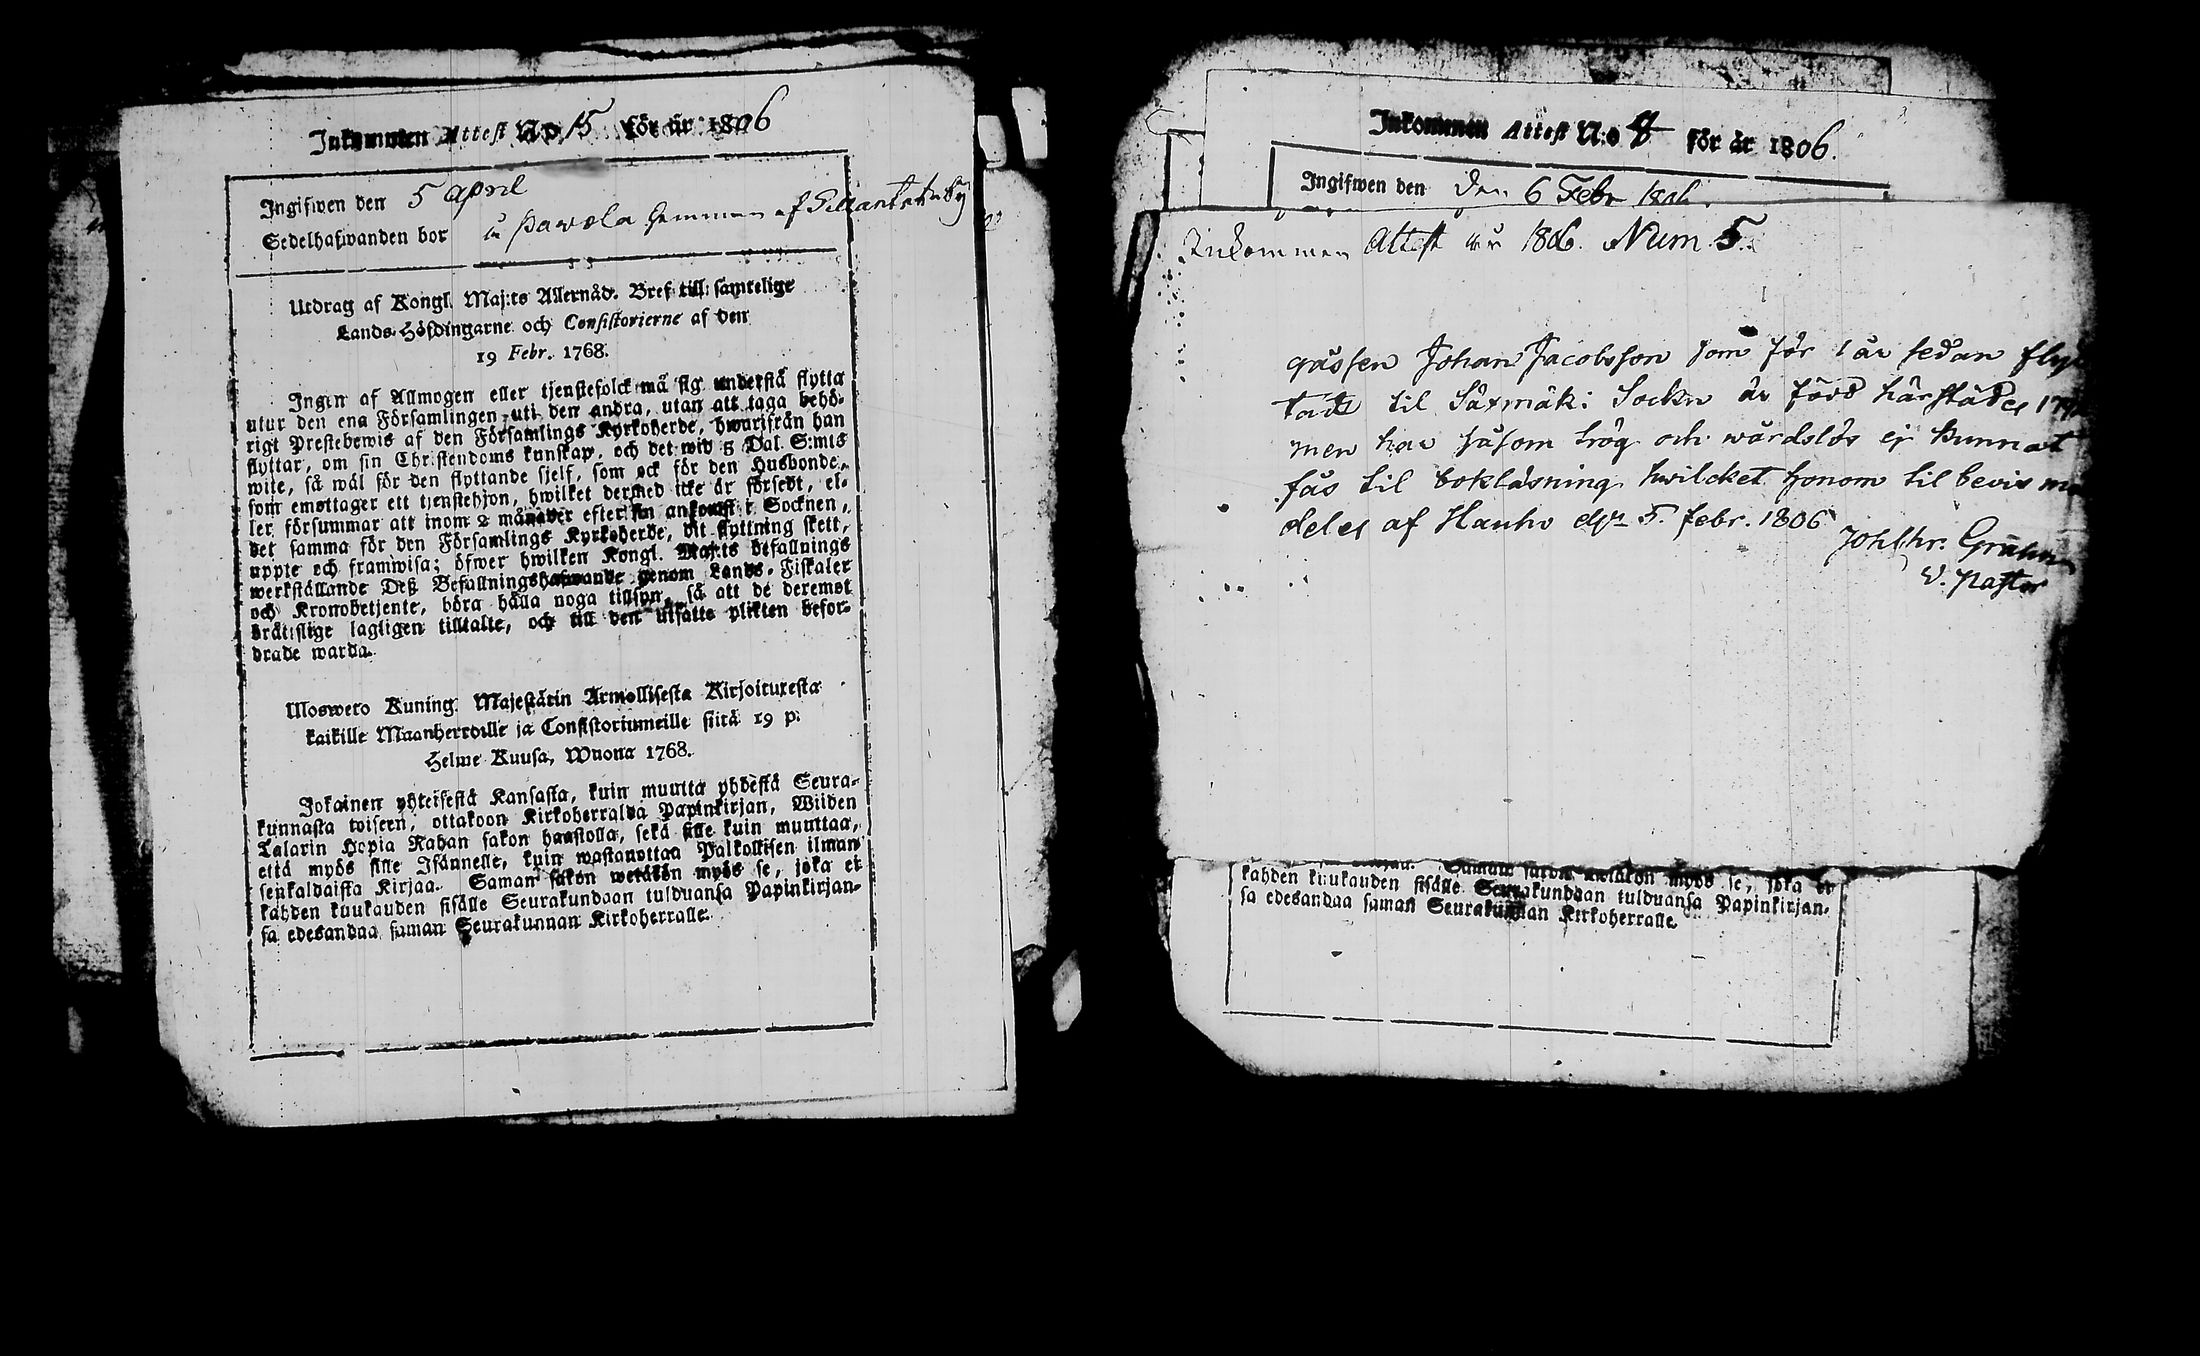 Inkommen Attest No 15 för år 1806
Ingifwen den 5 April
Sedelhafwanden bor Pawola hemman af
Utdrag af Kongl. Maj:ts Allernåd. Bref till samtelige
Lands-Höfdingarne och Consistorierne af den
19 Febr. 1768.
Ingen af Allmogen eller tjenstefolck må sig understå flytta
utur den ena Församlingen uti den andra, utan att taga behö-
rigt Prestebewis af den Församlings Kyrkoherde, hwarifrån han
flyttar, om sin Christendoms kunskap, och det wid 5 Dal. S:mts
wite, så wäl för den flyttande sjelf, som ock för den Husbonde,
som emottager ett tjenstehjon, hwilket dermed icke är försedt, el-
ler försummar att inom 2 månader efter sin ankomst i Socknen,
det samma för den Församlings Kyrkoherde, dit flyttning skett,
uppte och framwisa; öfwer hwilken Kongl. Maj:ts befallnings
werkställande Deß Befallningshafwande genom Lands-Fiskaler
och Kronobetjente, böra hålla noga tillsyn, så att de deremot
brättslige lagligen tilltalte, och till den utsatte plikten befor-
drade warda.
Uloswero Kuning. Majestätin Armollisesta Kirjoituxesta
kaikille Maanherroille ja Consistoriumeille siitä 19 p:
Helme Kuusa, Wuona 1768.
Jokainen yhteisestä Kansasta, kuin muutta yhdestä Seura-
kunnasta toiseen, ottakoon Kirkoherralda Papinkirjan, Wiiden
Talarin Hopia Rahan sakon haastolla, sekä sille kuin muuttaa,
että myös sille Isännelle, kuin wastanottaa Palkollisen ilman
senkaldaista Kirjaa. Saman sakon wetäkön myös se, joka ei
kahden kuukauden sisälle Seurakundaan tulduansa Papinkirjan-
sa edesandaa saman Seurakunnan Kirkoherralle.
Inkommen Attest N:o 8 för år 1806.
Ingifwen den den 6 Febr 1806.
Inkommen Attest år 1806. Num 5.
gåssen Johan Jacobsson som för 1 år sedan fly
tade til Säxmäki Sockn är född härstädes
men har såsom trög och wårdslös ej kunnat
fås til boklåsning hwilcket honom til bevis
deles af Hauho d. 5. febr. 1806
V. Pastor
Saman sakon wetäkön myös se, joka ei
kahden kuukauden sisälle Seurakundaan tulduansa Papinkirjan-
sa edesandaa saman Seurakunnan Kirkoherralle.